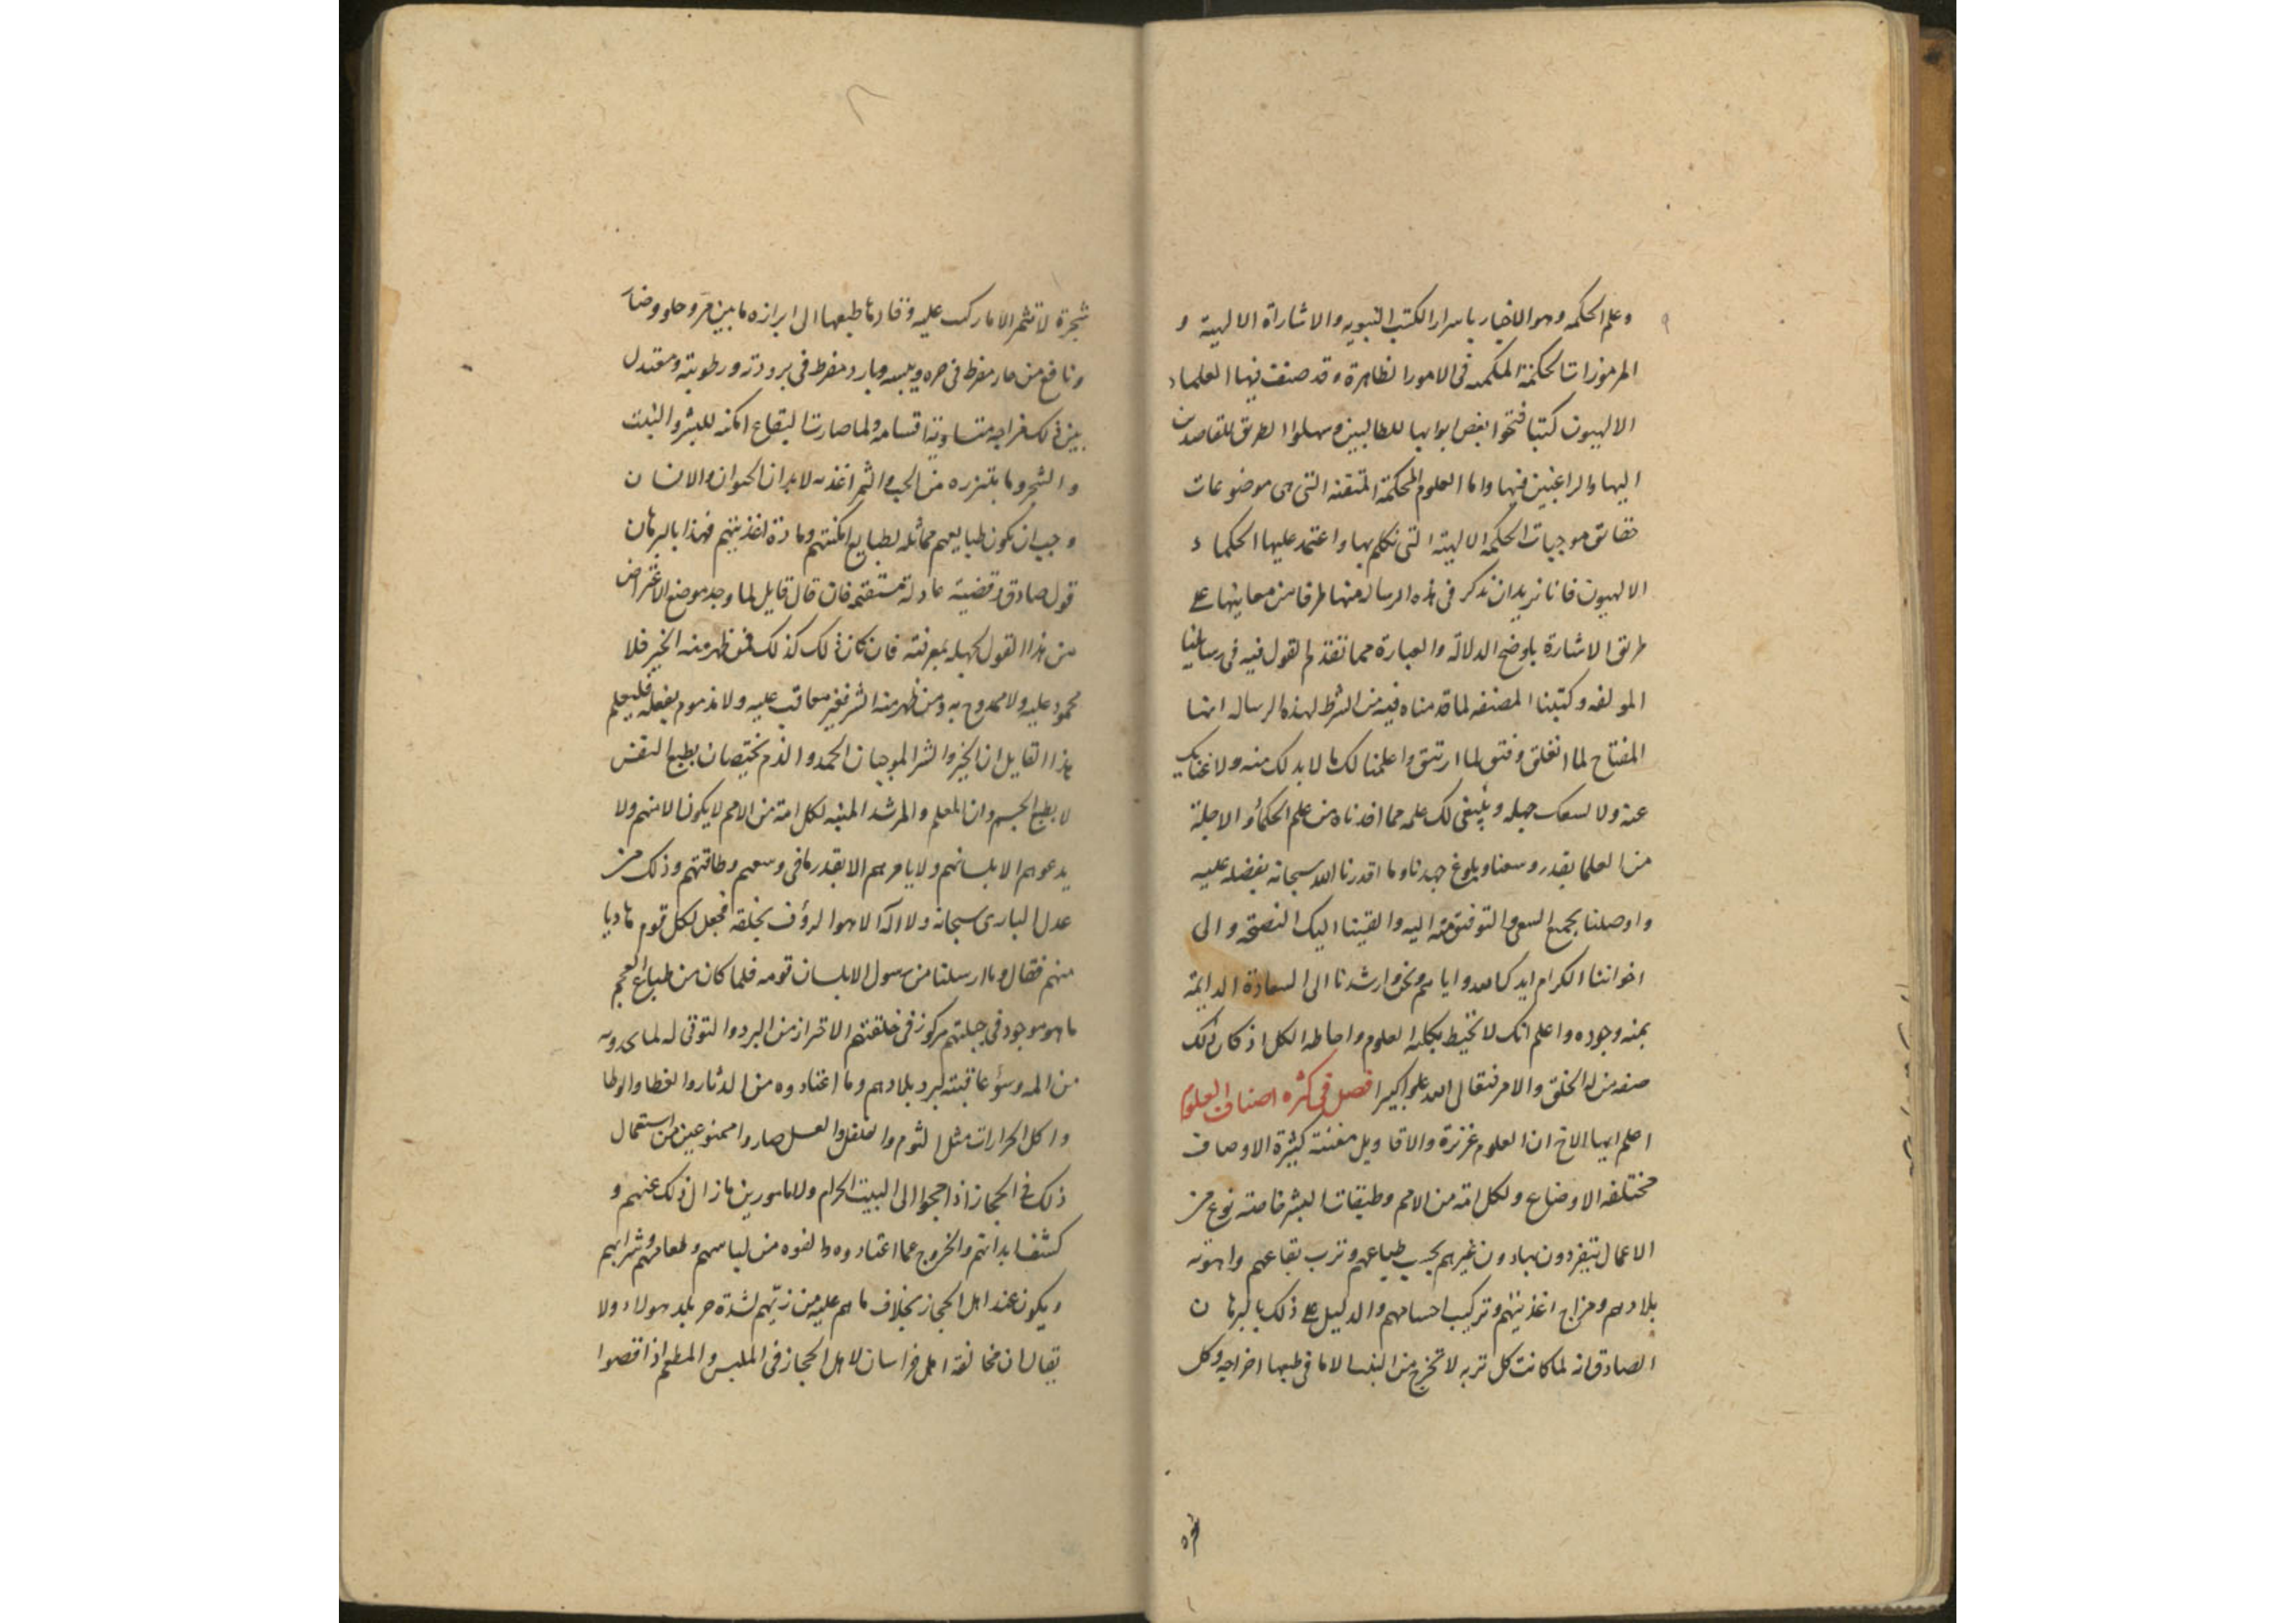 وعلم الحكمه وهو الاخبار باسرار الكتب النبويه والاشاراة الالهية و
المرموزات الحكمة المكمنه فى الامور الظاهرة وقد صنفت فيها العلماء
الالهيون كتبا فتحوا بعض ابوابها للطالبين وسهلوا الطريق للقاصدين
اليها والراغبين فيها واما العلوم المحكمة المتقنه التى هى موضوعات
حقائق موجبات الحكمه الالهية التى تكلم بها واعتمد عليها الحكماء
الالهيون فانا نريد ان نذكر فى هذه الرساله منها طرفا من معانيها على
طريق الاشارة باوضح الدلالة والعبارة مما تقدم القول فيه فى رسائلنا
المولفه وكتبنا المصنفه لما قدمناه فيه من الشرط لهذه الرساله انها
المفتاح لما انغلق وفتق لما ارتتق واعلمنا لك ما لا بد لك منه ولا غنا بك
عنه ولا يسعك جهله وينبغى لك علمه مما اخذناه من علم الحكمأ والاجلة
من العلما بقدر وسعنا وبلوغ جهدنا وما اقدرنا الله سبحانه بفضله عليه
واوصلنا بجميع السعى والتوفيق منه اليه والقينا اليك النصحة والى
اخواننا الكرام ايدك الله وايا هم ونحن وارشدنا الى السعادة الدايمة
بمنه وجوده واعلم انك لا تحيط بكليه العلوم واحاطه الكل اذ كان ذلك
صفه من له الخلق والامر فتعالى الله علوا كبيرا فصل فى كثره اصناف العلوم
اعلم ايها الاخ ان العلوم غزيرة والاقاويل مفننة كثيرة الاوصاف
مختلفه الاوضاع ولكل امة من الامم وطبقات البشر خاصة نوع من
الاعمال يتفردون بها دون غيرهم بحسب طباعهم وترب بقاعهم واهويه
بلادهم ومزاج اغذيتهم وتركيب اجسامهم والدليل على ذلك بالبرهان
الصادق انه لما كانت كل تربه لا تخرج من النبات الا ما فى طبعها اخراجه وكل
شجرة
شجرة لا تثمر الا ما ركب عليه وقادها طبعها الى ابرازه ما بين مر وحلو وضار
ونافع من حار مفرط فى حره ويبسه وبارد مفرط فى برودته ورطوبته ومعتدل
بين ذلك مزاجه متساوية اقسامه ولما صارت البقاع امكنه للبشر والنبت
والشجر وما يتبزره من الحب والثمر اغذيه لابدان الحيوان والانسان
وجب ان يكون طبايعهم مماثله لطبايع امكنتهم ومادة اغذيتهم فهذا بالبرهان
قول صادق وقضية عادلة مستقيمه فان قال قايل لما وجد موضع الاعتراض
من هذا القول لجهله بمعرفته فان كان ذلك كذلك فمن ظهر منه الخير فلا
محمود عليه ولا ممدوح به ومن ظهر منه الشر فغير معاقب عليه ولا مذموم بفعله فليعلم
هذا القايل ان الخير والشر الموجبان الحمد والذم يختصان بطبع النفس
لا بطبع الجسم وان المعلم والمرشد المنبه لكل امة من الامم لا يكون الا منهم ولا
يدعوهم الا بلسانهم ولا يامرهم الا بقدر ما فى وسعهم وطاقتهم وذلك من
عدل البارى سبحانه ولا اله الا هو الرؤف بخلقه فجعل لكل قوم هاديا
منهم فقال وما ارسلنا من رسول الا بلسان قومه فلما كان من طباع العجم
ما هو موجود فى جبلتهم مركوز فى خلقتهم الاحتراز من البرد والتوقى له لما يجدونه
من المه وسؤ عاقبته لبرد بلادهم وما اعتادوه من الدثار والغطا والوطا
واكل الحرارات مثل الثوم والفلفل والعسل صاروا ممنوعين من استعمال
ذلك فى الحجاز اذا حجوا الى البيت الحرام ولا مامورين ما زال ذلك عنهم و
كشف ابدانهم والخروج عما اعتادوه والفوه من لباسهم وطعامهم وشرابهم
ويكون عند اهل الحجاز بخلاف ما هم عليه من زيّهم لشدة حر بلد هولاء ولا
يقال ان مخالفة اهل خراسان لاهل الحجاز فى الملبس والمطعم اذا قصوا